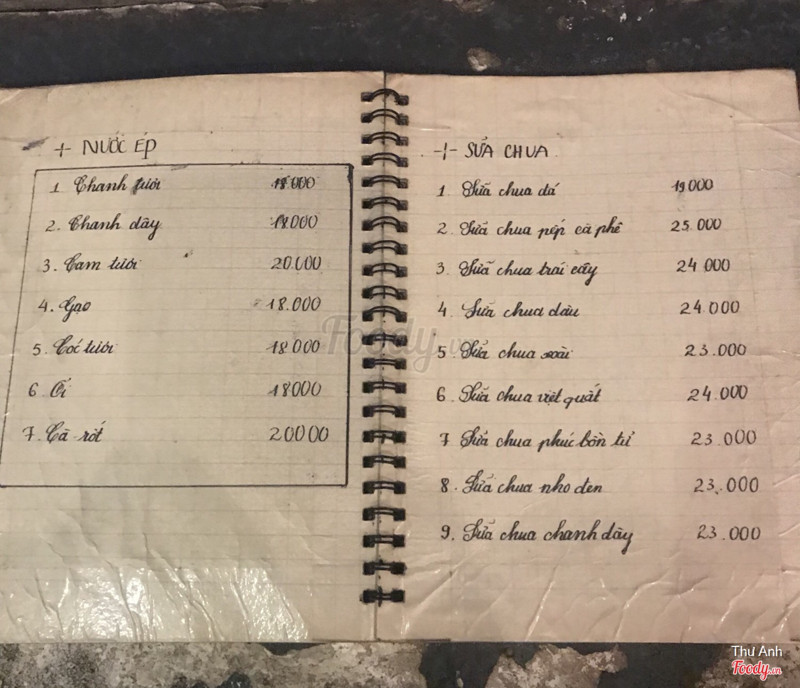 + NƯỚC ÉP
1 Chanh tươi 18.000
2. Chanh dây 18.000
3. Cam tươi 20.000
4. Gạo 18.000
5. Cóc tươi 18 000
6 Ổi 18000
7. Cà rốt 20000
+ SỮA CHUA
1. Sữa chua đá 19 000
2 Sữa chua pép cà phê 25 000
3 Sữa chua trái cây 24 000
4 Sữa chua dâu 24.000
5 Sữa chua xoài 23.000
6 Sữa chua việt quất 24.000
7 Sữa chua phúc bồn tử 23.000
8. Sữa chua nho đen 23.000
9. Sữa chua chanh dây 23.000
Foody.vn
Thư Anh
Foody.vn